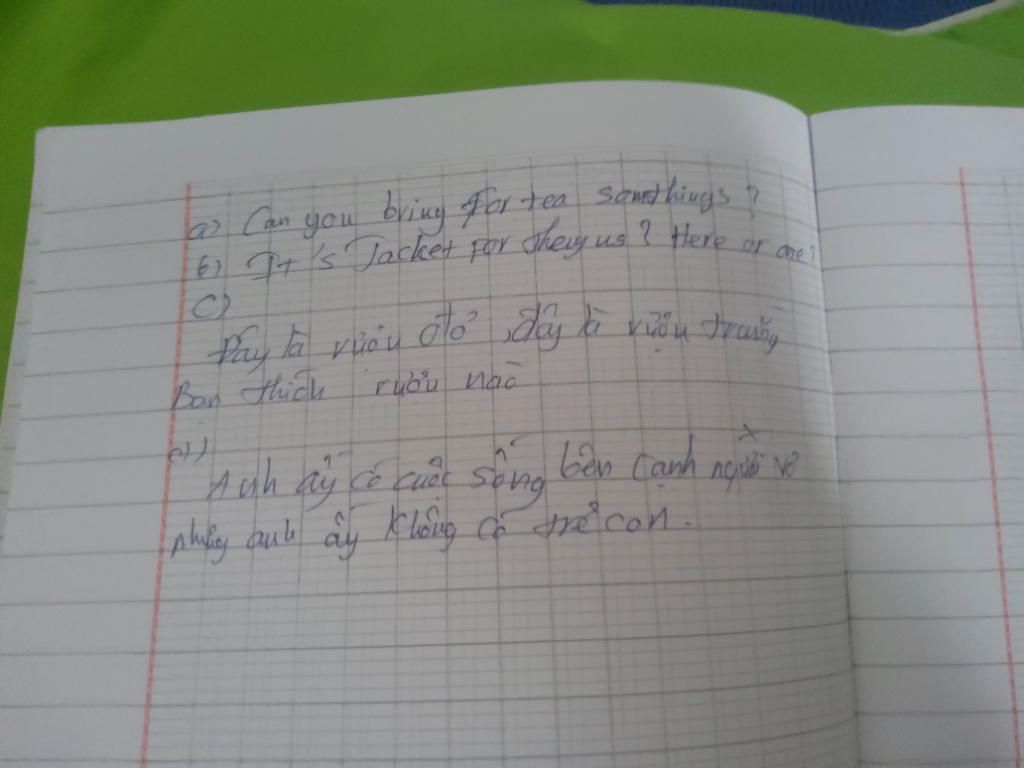 a) Can you bring for tea somethings?
b) It's Jacket for they us? Here or one?
c)
Đây là rượu đỏ, đây là rượu trắng
Bạn thích rượu nào
d)
Anh ấy có cuộc sống bên cạnh người vợ
nhưng anh ấy không có trẻ con.